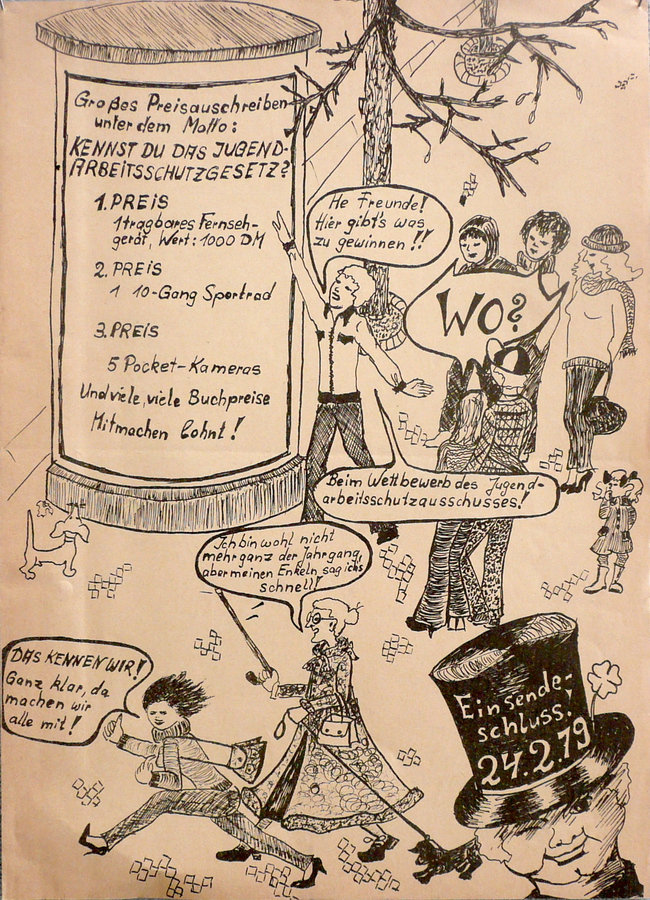 Großes Preisauschreiben
unter dem Motto:
KENNST DU DAS JUGEND-
ARBEITSSCHUTZGESETZ?
1. PREIS
1 tragbares Fernseh-
gerät, Wert: 1000 DM
2. PREIS
1 10-Gang Sportrad
3. PREIS
5 Pocket-Kameras
Und viele, viele Buchpreise
Mitmachen lohnt!
He Freunde!
Hier gibt's was
zu gewinnen!!
WO?
Beim Wettbewerb des Jugend-
arbeitsschutzausschusses!
Ich bin wohl nicht
mehr ganz der Jahrgang,
aber meinen Enkeln sag ichs
schnell!
DAS KENNEN WIR!
Ganz klar, da
machen wir
alle mit!
Einsende-
schluss!
24.2.79